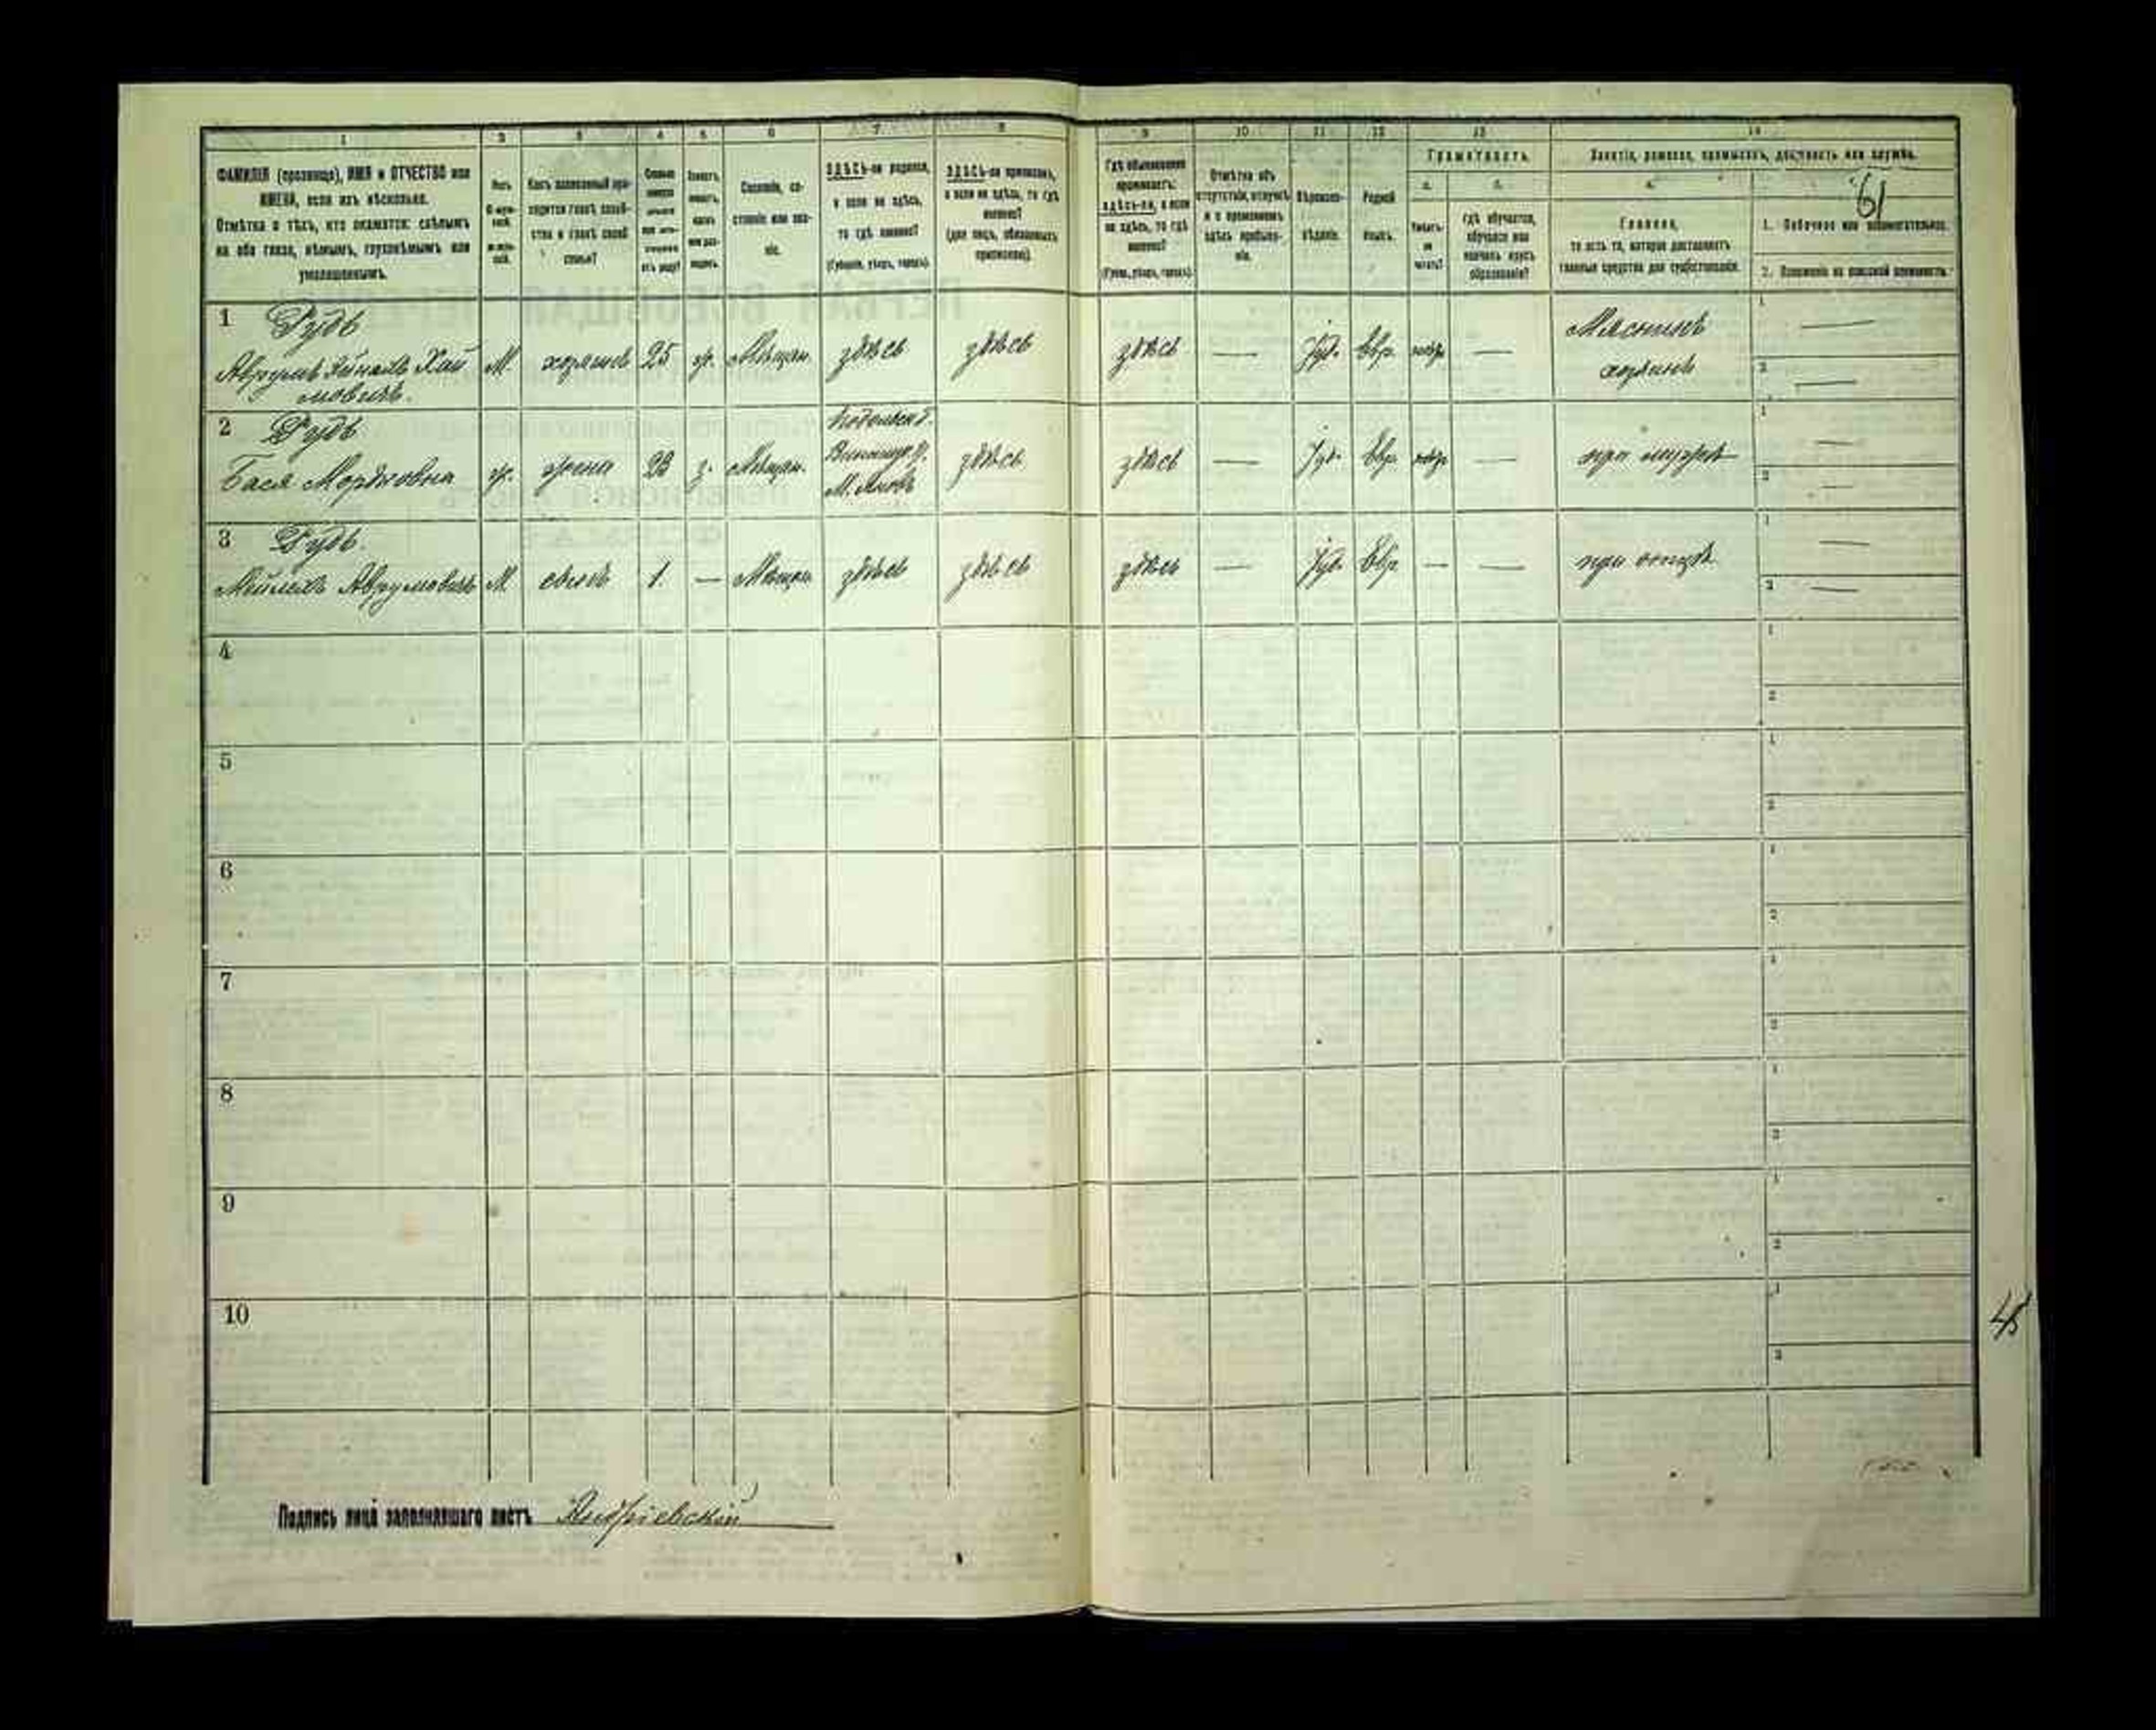 1 2 3 4 5 6 7 8 9 10 11 12 13 14
ФАМИЛІЯ (прозвище), ИМЯ и ОТЧЕСТВО или
ИМЕНА, если ихъ нѣсколько.
Отмѣтка о тѣхъ, кто окажется: слѣпымъ
на оба глаза, нѣмымъ, глухонѣмымъ или
умалишеннымъ.
Какъ записанный при-
ходится главѣ хозяй-
ства и главѣ своей
семьи?
Сословіе, со-
стояніе или зва-
ніе.
ЗДѢСЬ-ли родился,
а если не здѣсь,
то гдѣ именно?
(Губернія, уѣздъ, городъ).
ЗДѢСЬ-ли приписанъ,
а если не здѣсь, то гдѣ
именно?
(для лицъ, обязанныхъ
припискою).
Гдѣ обыкновенно
проживаетъ:
здѣсь-ли, а если
не здѣсь, то гдѣ
именно?
(Губер., уѣздъ, городъ).
Отмѣтка объ
отсутствіи, отлучкѣ
и о временномъ
здѣсь пребыва-
ніи.
Вѣроиспо-
вѣданіе.
Родной
языкъ.
Грамотность.
а.
б.
Умѣетъ-
ли
читать?
гдѣ обучается,
обучался или
кончилъ курсъ
образованія?
Занятіе, ремесло, промыселъ, должность или служба.
а.
Главное,
то есть то, которое доставляетъ
главныя средства для существованія.
61
1. Побочное или вспомогательное.
2. Положеніе по воинской повинности.
1 Рудь
Аврумъ Хай
мовичъ.
М. хозяинъ 25 ж. Мѣщан. здѣсь здѣсь здѣсь — Іуд. Евр. —
Мясникъ
хозяинъ
1 —
2 —
2 Рудь
Бася Мордковна
ж. жена 23 з. Мѣщан.
Подольск. г.
Винницк. у.
М. Яновъ
здѣсь здѣсь — Іуд. Евр. — при мужѣ
1 —
2 —
3 Рудь.
Мейлехъ Аврумовичъ М. сынъ 1. — Мѣщан. здѣсь здѣсь здѣсь — Іуд. Евр. — — при отцѣ
1 —
2 —
4
1
2
5
1
2
6
1
2
7
1
2
8
1
2
9
1
2
10
1
2
45
Подпись лица заполнявшаго листъ Андріевскій